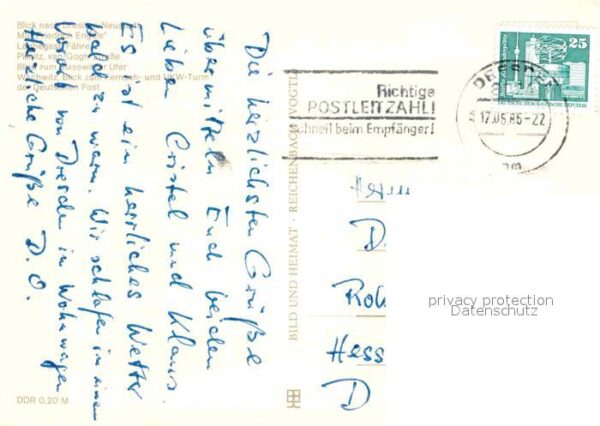 Blick nach Dresden Neustadt
MS "Friedrich Engels"
Laubegast, Fähre
Pillnitz, van-Gogh-Straße
Blick zum Blasewitzer Ufer
Wachwitz, Blick zum Fernseh- und UKW-Turm
der Deutschen Post
Die herzlichsten Grüße
übermitteln Euch beiden
Lieben Cristel und Klaus.
Es ist ein herrliches Wetter
bald zu warm. Wir schlafen in einem
Vorort von Dresden in Wohnwagen
Herzliche Grüße D. O.
DDR 0,20 M
BILD UND HEIMAT · REICHENBACH (VOGTL)
Richtige
POSTLEITZAHL!
schneil beim Empfänger!
DRESDEN
17.06.86-22
25
DEUTSCHE DEMOKRATISCHE REPUBLIK
D
Roh
Hess
D
privacy protection
Datenschutz